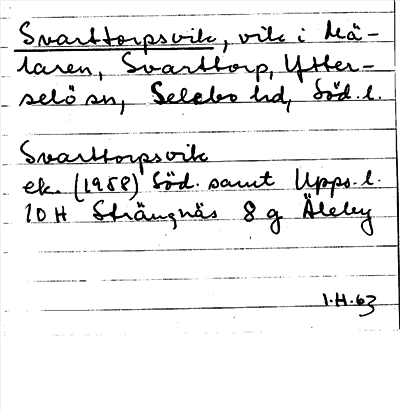 Svarttorpsvik, vik i Mä-
laren, Svarttorp, Ytter-
selö sn, Selebo hd, Söd. l.
Svarttorpsvik
ek. (1958) Söd. samt Upps. l.
10 H Strängnäs 8 g Äleby
1.H.63